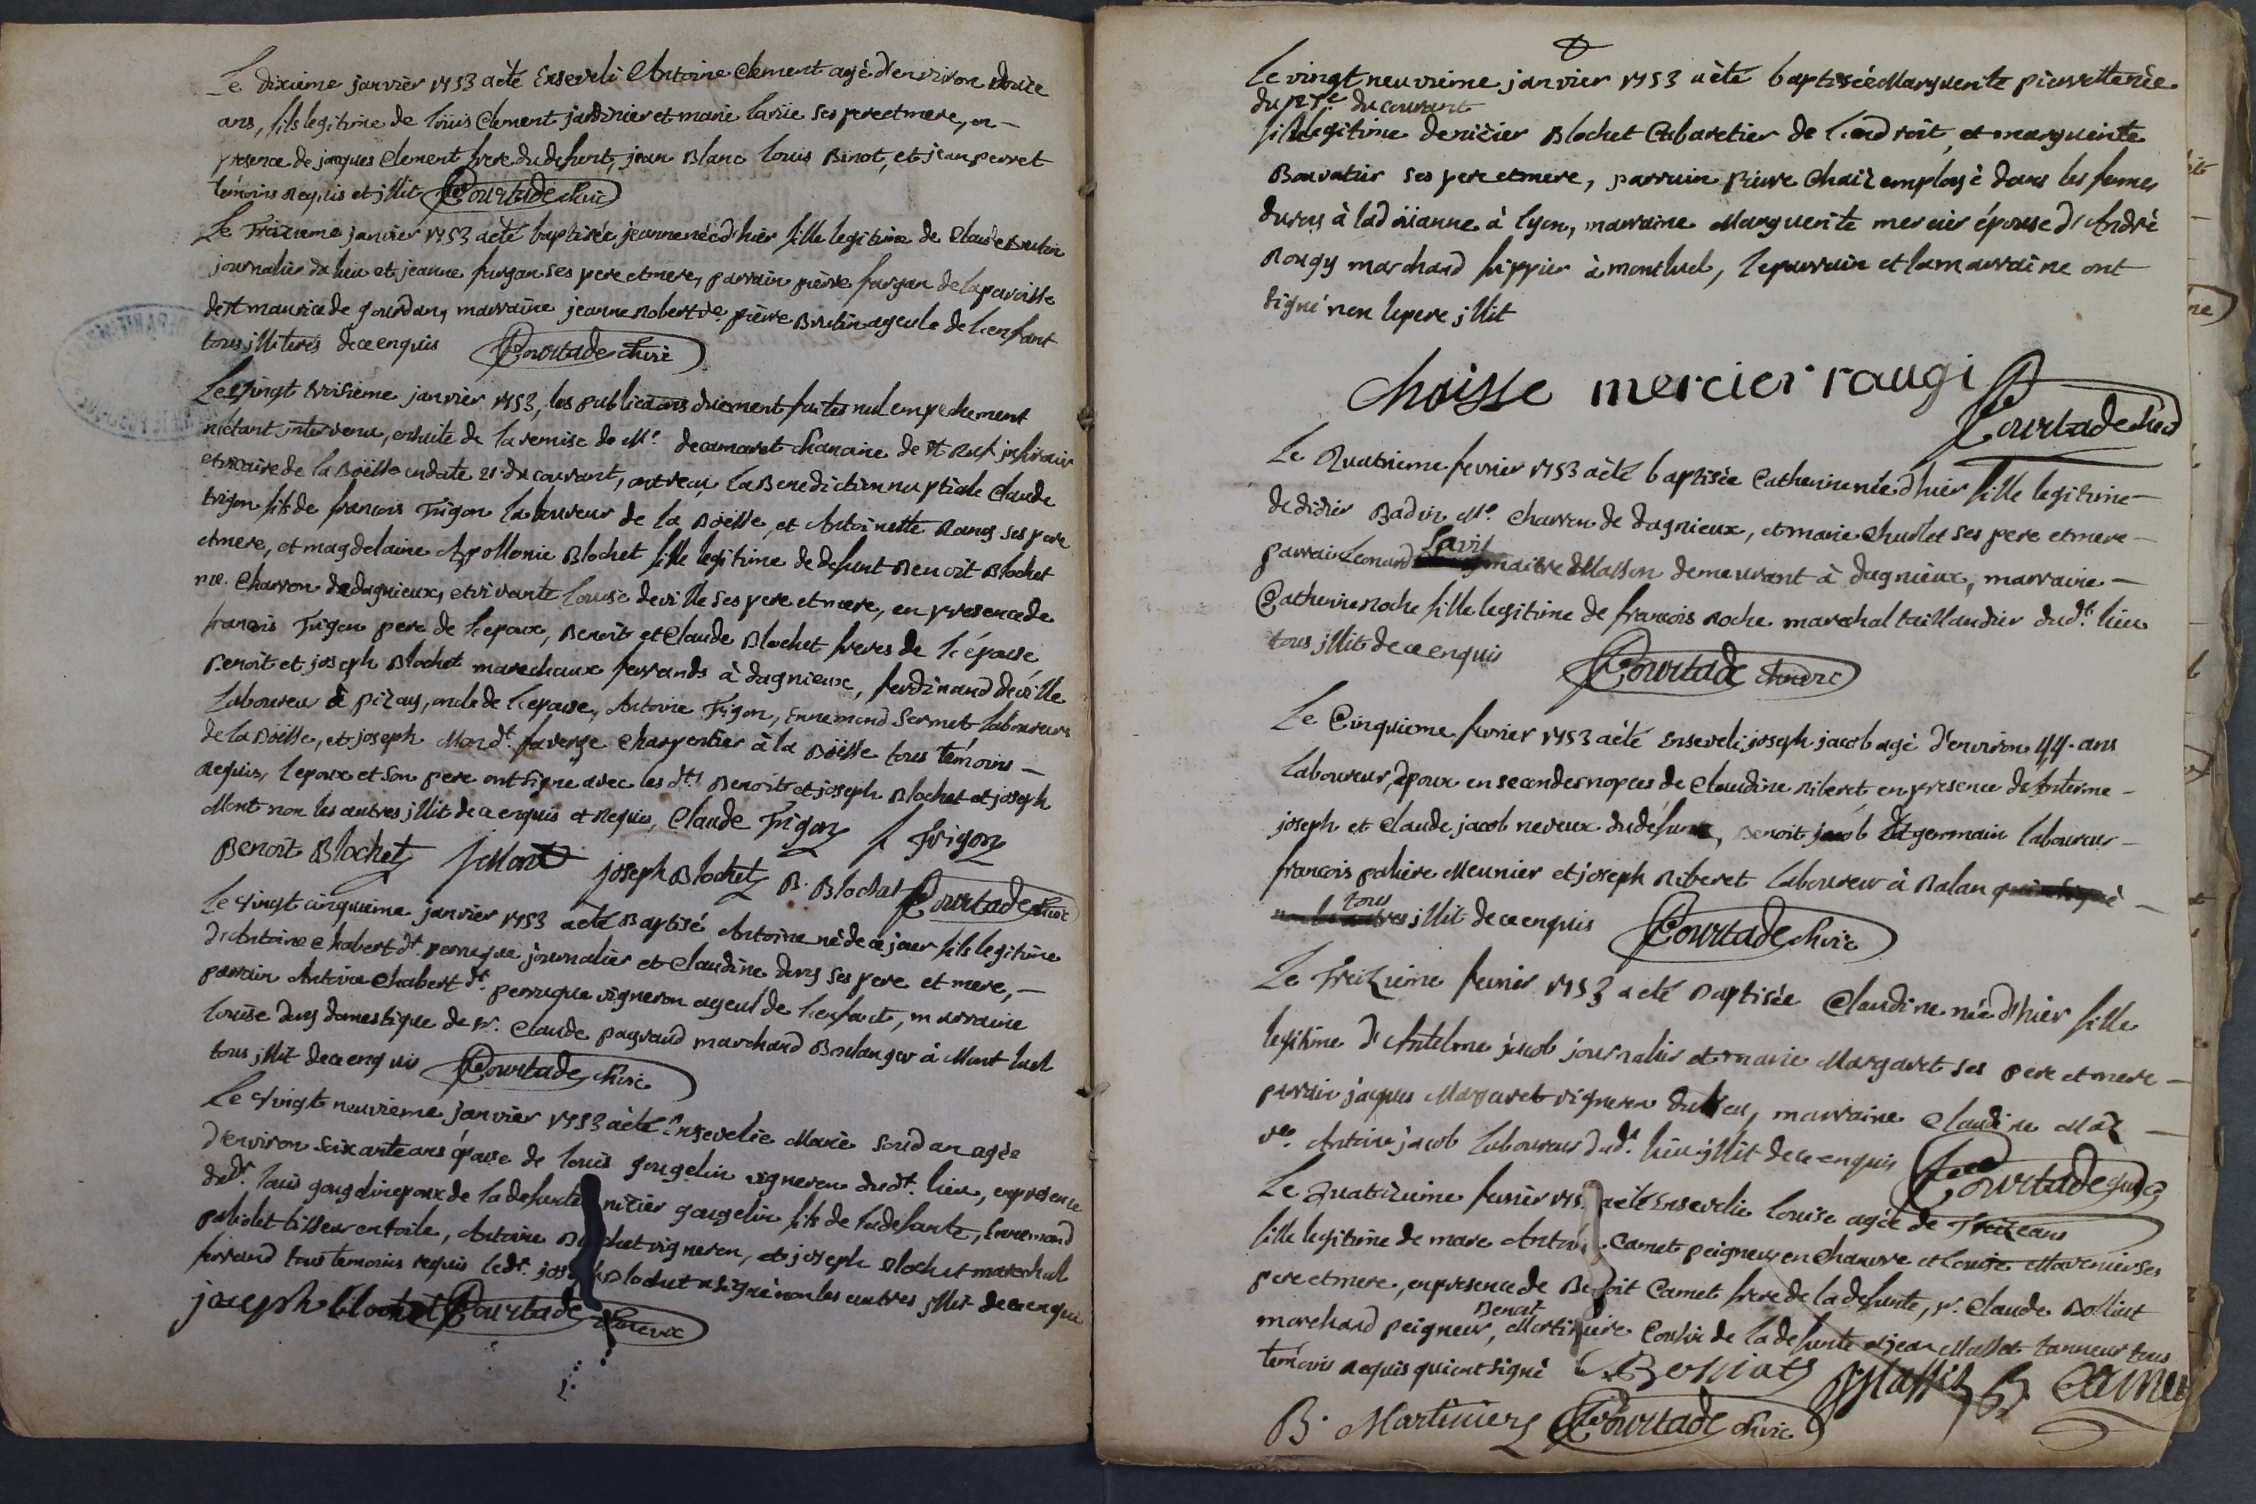 Le dixième janvier 1753 a été Enseveli Antoine Clement agé d'environ douze
ans, fils legitime de Loüis Clement jardinier et marie Larüe ses pere et mere, en
presence de jacques Clement frere du defunt, jean Blanc Louis Binot, et jean perret
temoins Requis et jllit Courtade Curé
Le Treizieme janvier 1753 a été baptisée jeanne née d'hier fille legitime de Claude Brulin
journalier du lieu et jeanne furgan ses pere et mere, parrain pierre furgan de la paroisse
de st maurice de gourdan, marraine jeanne Robert ve. pierre Brulin ayeule de l'enfant
tous jlliterés de ce enquis Courtade Curé
Le Vingt troisième janvier 1753, les publications duement faites nul empechement
n'étant intervenu, ensuite de la remise de Mr. decamaret chanoine de st Ruf
et vicaire de la Boëlle en date 21. du courant, ont reçu la Benediction nuptiale Claude
Trigon fils de francois Trigon laboureur de la Boëlle, et Antoinette Ranq ses pere
et mere, et magdelaine Apollonie Blochet fille legitime de defunt Benoit Blochet
me. Charron de dagnieux, et vivante Louise deville ses pere et mere, en presence de
francois Trigon pere de l'epoux, Benoit et Claude Blochet freres de l'épouse
Benoit et joseph Blochet marechaux ferrands à dagnieux, ferdinand deville
Laboureur à pizay, oncle de l'epouse, Antoine Trigon, Ennemond Sermet Laboureurs
de la Boëlle, et joseph Mon dt. faverge Charpentier à la Boësse tous temoins
Requis, l'epoux et son pere ont signe avec les dts Benoit et joseph Blochet et joseph
Mont non les autres jllit de ce enquis et Requis, Claude Trigon f Trigon
Benoit Blochet j Mont joseph Blochet B. Blochat Courtade Curé
Le Vingt cinquieme janvier 1753 a été Baptisé Antoine né de ce jour fils legitime
d'Antoine Chabert dt. perruque journalier et Claudine durs ses pere et mere,
parrain Antoine Chabert dt. perruque vigneron ayeul de l'enfant, marraine
Louise durs domestique de Sr. Claude pagraud marchand Boulanger à Mont luel
tous jllit de ce enquis Courtade Curé
Le Vingt neuvième janvier 1753 a été Ensevelie Marie Soudan agée
d'environ Soixante ans épouse de Loüis gougelin vigneron dudt. lieu, en presence
dudt. Loüis gougelin epoux de la defunte nicier gougelin fils de la defunte, Ennemond
poliolet tisseur en toile, Antoine Blochet vigneron, et joseph Blochet marechal
ferrand tous temoins requis le dt. joseph Blochet a signé non les autres jllit de ce enquis
joseph blochet Courtade Curé
Le vingt neuvieme janvier 1753 a été baptisée Marguerite pierrette née
du 27e. du courant
fille legitime de nicier Blochet Cabaretier de l'endroit, et marguerite
Bouvatier ses pere et mere, parrain Pierre Chaiz employé dans les fermes
du roy à la doüanne à lyon, marraine Marguerite mercier épouse d'André
Rougy marchand frippier à montluel, le parrain et la marraine ont
signé non le pere jllit
Choisse mercier raugi
Courtade Curé
Le Quatrieme fevrier 1753 a été baptisée Catherine née d'hier fille legitime
de didier Badin Me. Charron de dagnieux, et marie Chullet ses pere et mere
Savil
parrain Leonard maitre Masson demeurant à dagnieux, marraine
Catherine Roche fille legitime de francois Roche marechal taillandier dudt. lieu
tous jllit de ce enquis Courtade Curé
Le Cinquieme fevrier 1753 a été Enseveli joseph jacob agé d'environ 44. ans
Laboureur, époux en secondes nopces de Claudine Riberet en presence de Antelme
joseph et Claude jacob neveux du défunt, Benoit jacob dt germain laboureur
francois poliere Meunier et joseph Riberet Laboureur à Balan
tous
jllit de ce enquis Courtade Curé
Le Treizieme fevrier 1753 a été Baptisée Claudine née d'hier fille
legitime d'Antelme jacob journalier et marie Margaret ses pere et mere
parrain jaques Margaret vigneron du lieu, marraine Claudine Maz
ve. Antoine jacob Laboureur dudt. lieu jllit de ce enquis Courtade Curé
Le Quatorzieme fevrier 175 a été Ensevelie Louise agée de Treize ans
fille legitime de marc Antoine Camet peigneur en Chanvre et Louise Mavernier ses
pere et mere, en presence de Benoit Camet frere de la defunte, sr. Claude Bolliat
Benoit
marchand peigneur, Martiniere Cousin de la defunte et jean Masset tanneur tous
temoins Requis qui ont signé C. Bolliat J Massit B Camet
B. Martiniere Courtade Curé